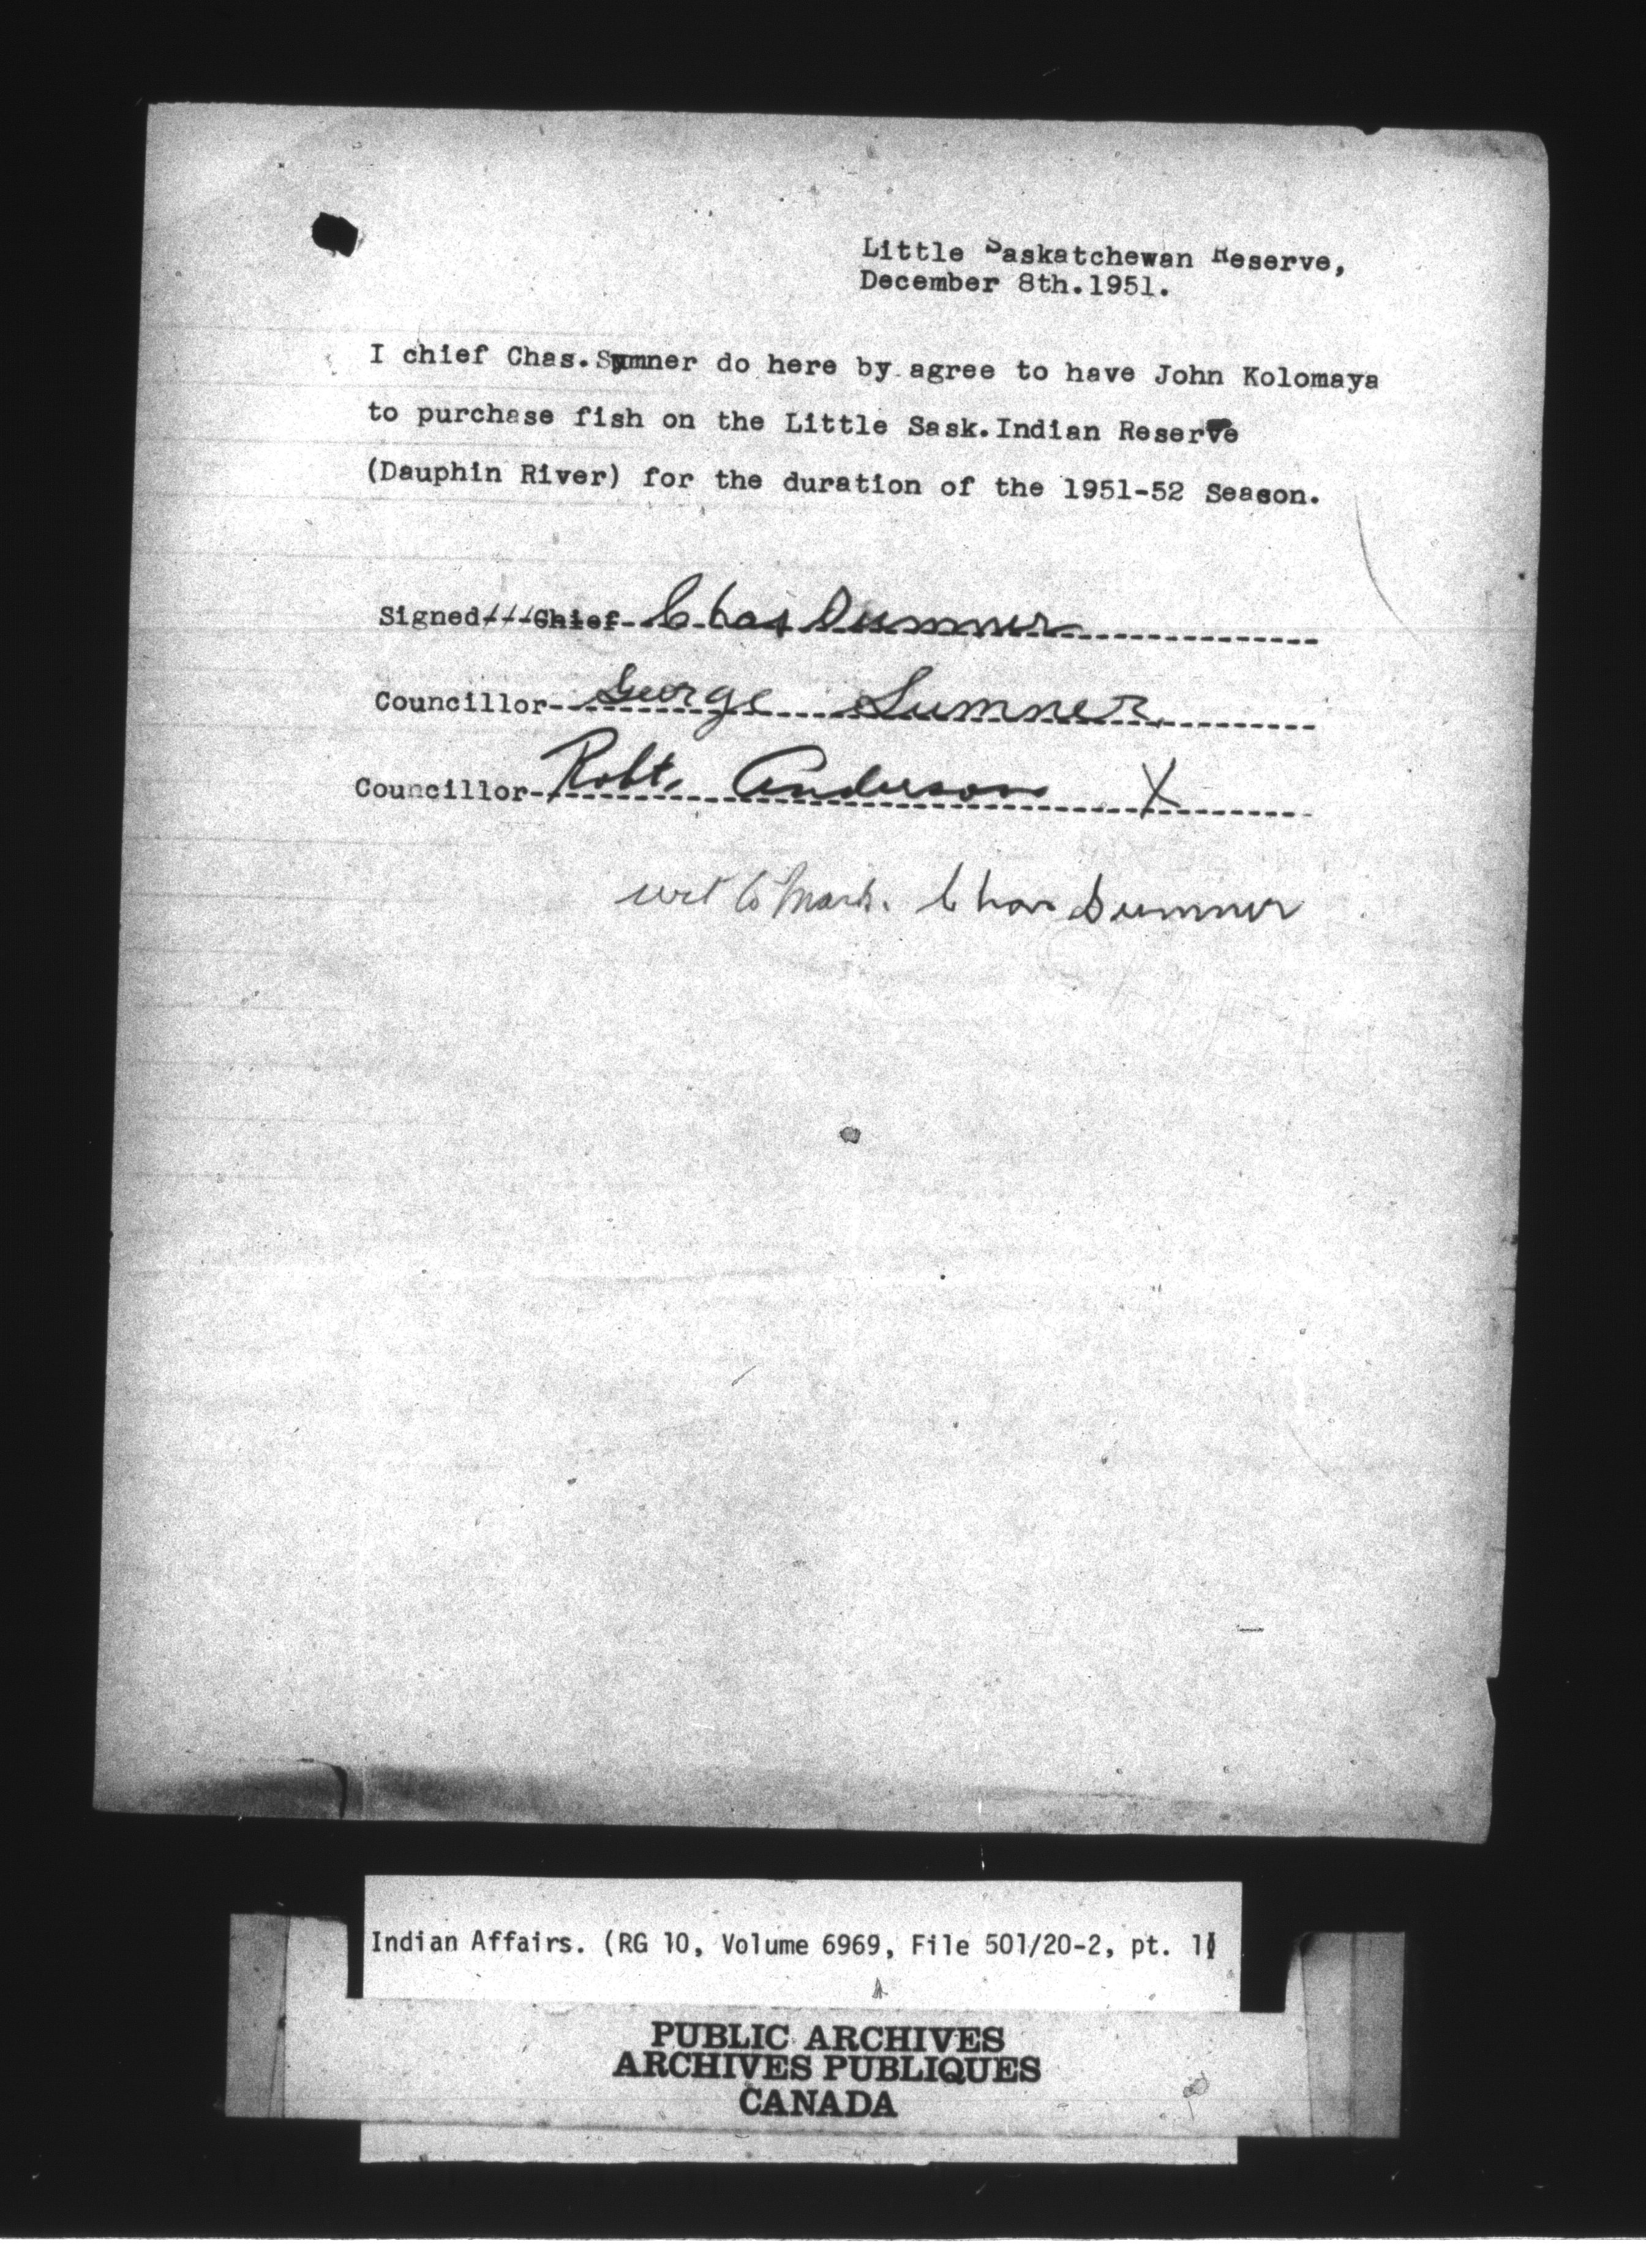 Little Saskatchewan Reserve,
December 8th.1951.
I chief Chas.Summer do here by agree to have John Kolomaya
to purchase fish on the Little Sask.Indian Reserve
(Dauphin River) for the duration of the 1951-52 Season.
Signed///Chief Chas Sumner
Councillor George Sumner
Councillor Robt. Anderson X
wit to Mark. Chas Sumner
Indian Affairs. (RG 10, Volume 6969, File 501/20-2, pt. 1)
PUBLIC ARCHIVES
ARCHIVES PUBLIQUES
CANADA